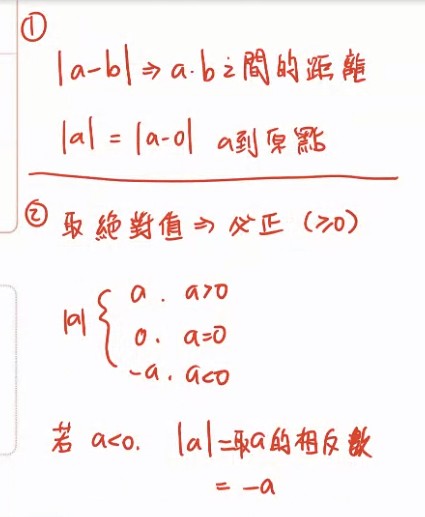 ①
|a-b| ⇒ a.b之間的距離
|a| = |a-0| a到原點
② 取絕對值 ⇒ 必正 (≥0)
|a| { a . a>0
0 . a=0
-a . a<0
若 a<0. |a|=取a的相反數
= -a